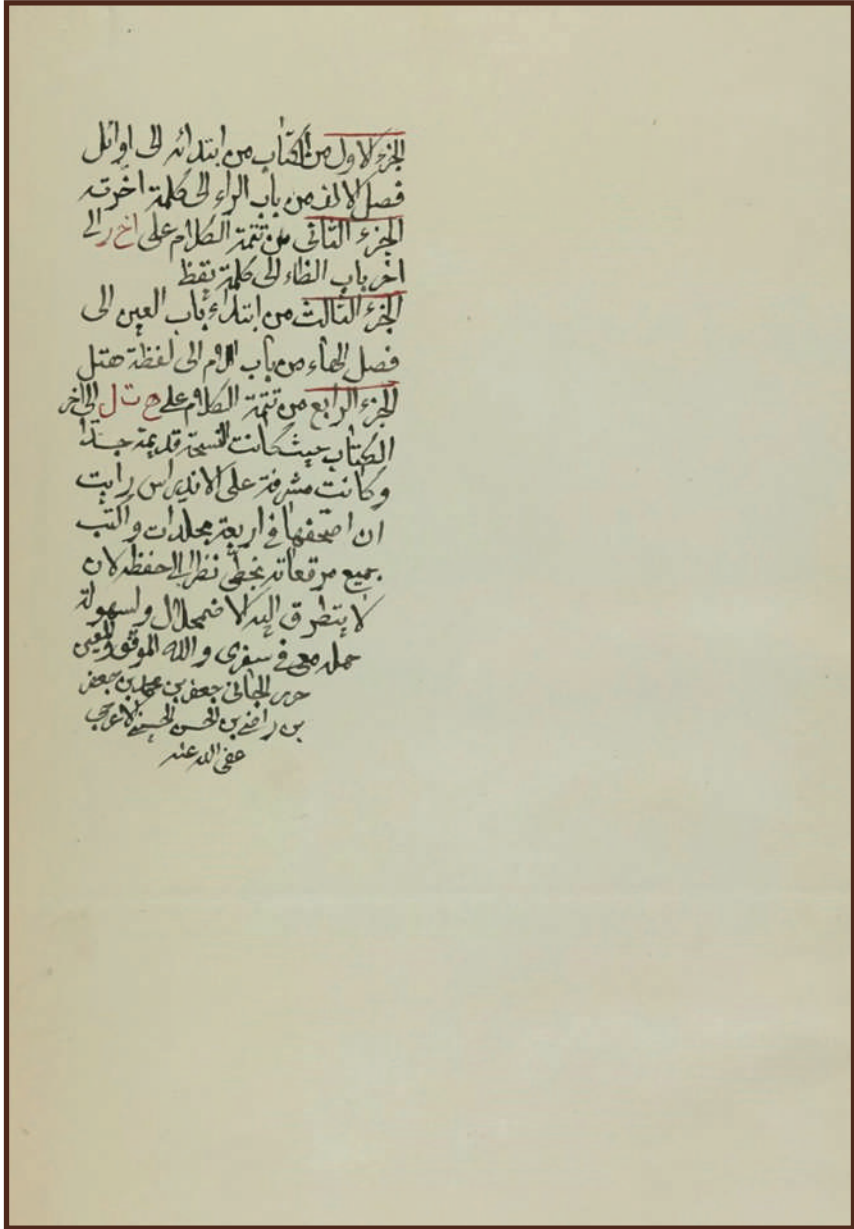 الجزء الاول من الكتاب من ابتدائه الى اوائل
فصل الالف من باب الراء الى كلمة اخرته
الجزء الثاني من تتمة الكلام على اخ ر الى
اخر باب الظاء الى كلمة يقظ
الجزء الثالث من ابتداء باب العين الى
فصل الهاء من باب اللام الى لفظة هتل
الجزء الرابع من تتمة الكلام على ه ت ل الى اخر
الكتاب حيث كانت النسخة قديمة جدا
وكانت مشرفة على الاندراس رايت
ان اصحفها في اربعة مجلدات واكتب
جميع مرقعاته بخطي نظرا الى حفظه لان
لا يتطرق اليه الاضمحلال ولسهولة
حمله معي في سفري والله الموفق والمعين
حرره الجاني جعفر بن محمد بن جعفر
بن راضي بن الحسن الحسيني الاعرجي
عفى الله عنه